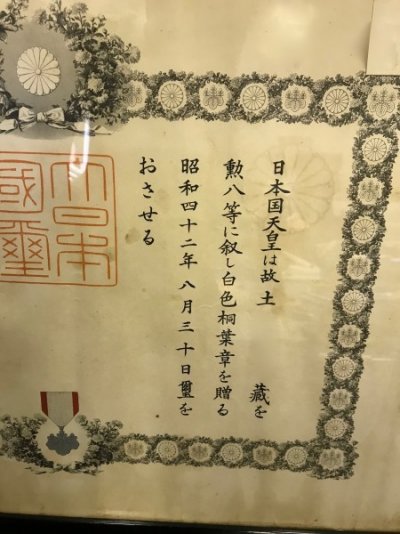 日本国天皇は故土 藏を
勲八等に叙し白色桐葉章を贈る
昭和四十二年八月三十日璽を
おさせる
大日本
國璽